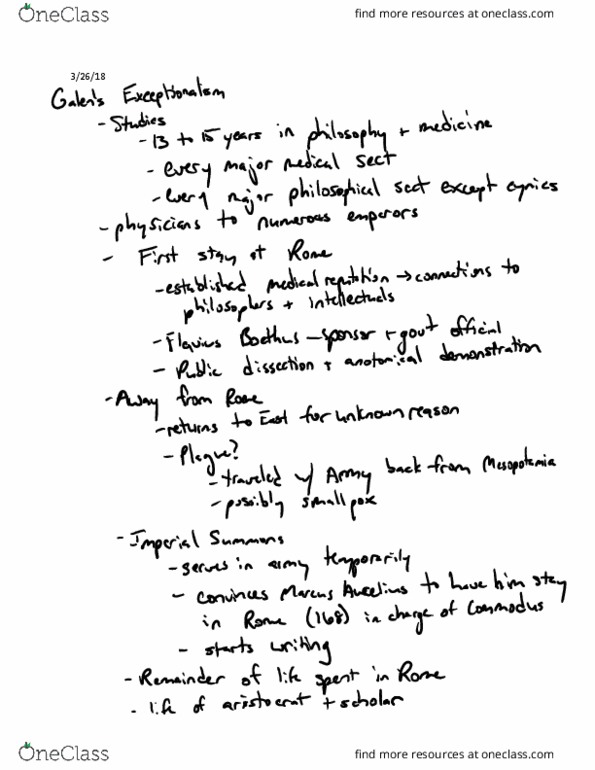 OneClass
find more resources at oneclass.com
3/26/18
Galen's Exceptionalism
- Studies
- 13 to 15 years in philosophy + medicine
- every major medical sect
- every major philosophical sect except cynics
- physicians to numerous emperors
- First stay at Rome
- established medical reputation → connections to
philosophers + intellectuals
- Flavius Boethus - sponsor + govt official
- Public dissection + anatomical demonstration
- Away from Rome
- returns to East for unknown reason
- Plague?
- traveled w/ Army back from Mesopotamia
- possibly small pox
- Imperial Summons
- serves in army temporarily
- convinces Marcus Aurelius to have him stay
in Rome (168) in charge of Commodus
- starts writing
- Remainder of life spent in Rome
- life of aristocrat + scholar
OneClass
find more resources at oneclass.com